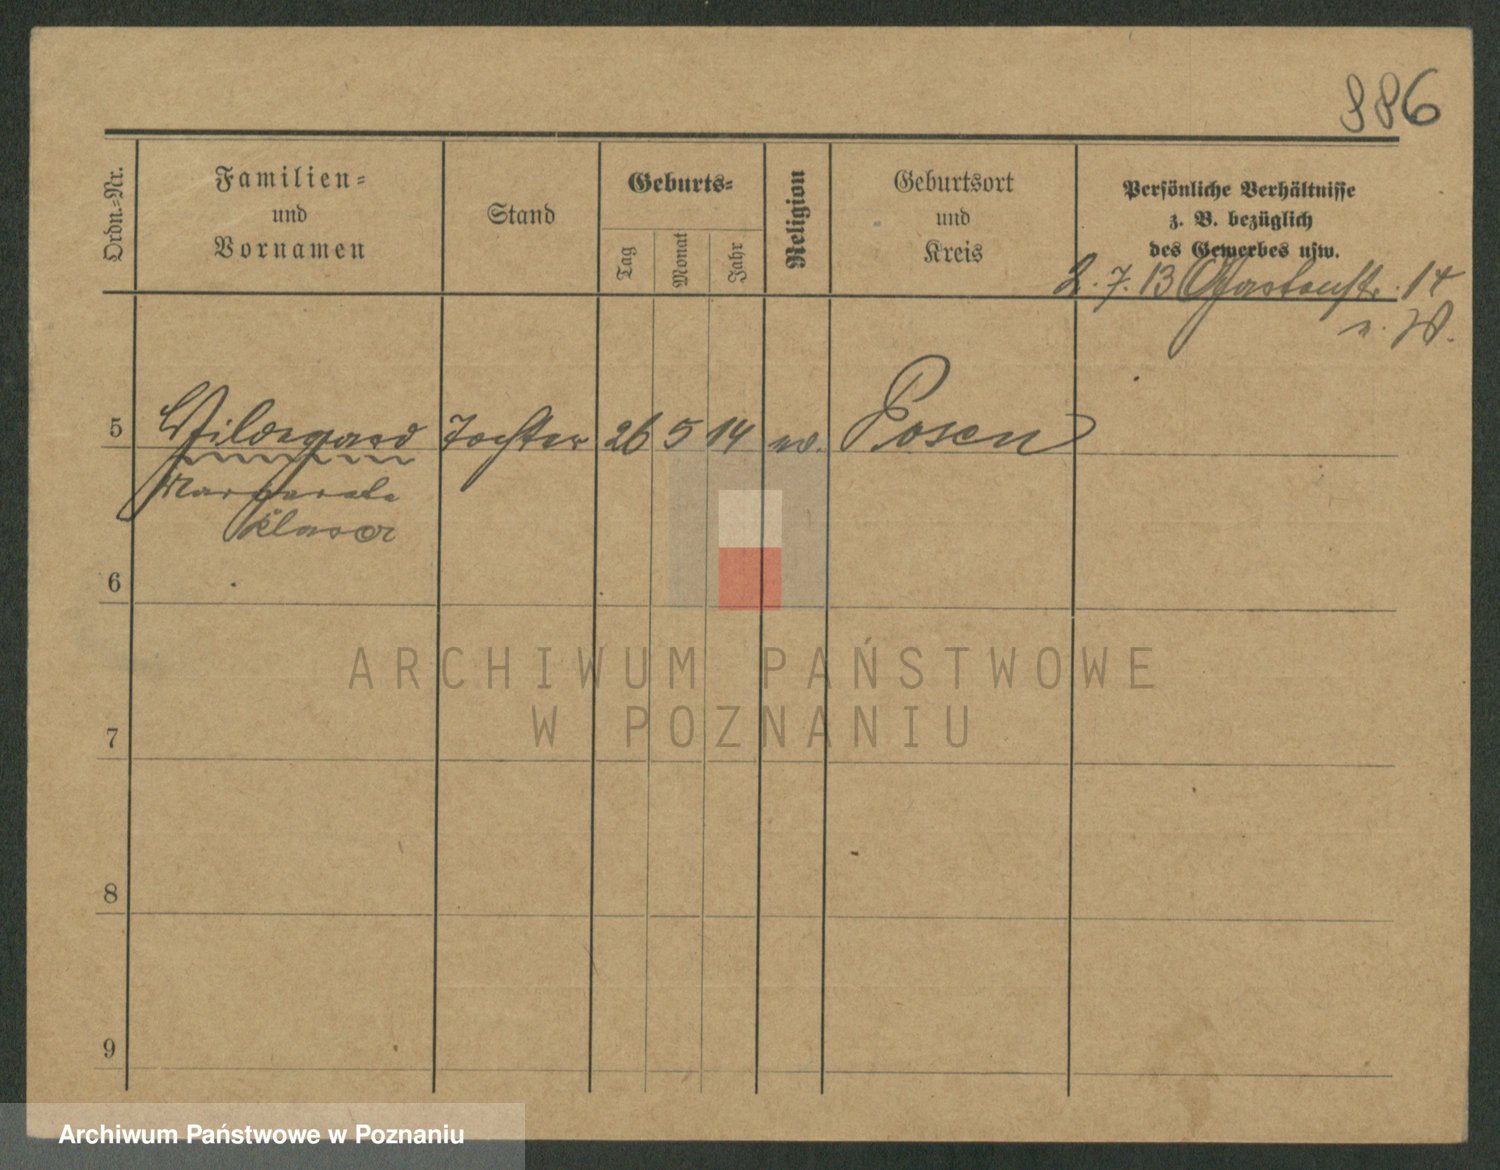 886
Ordn.-Nr.
Familien-
und
Vornamen
Stand
Geburts-
Tag
Monat
Jahr
Religion
Geburtsort
und
Kreis
Persönliche Verhältnisse
z. B. bezüglich
des Gewerbes usw.
2. 7. 13 14
n. W.
5 Hildegard Tochter 26 5 14 ev. Posen
Margarete
6
7
8
9
ARCHIWUM PAŃSTWOWE
W POZNANIU
Archiwum Państwowe w Poznaniu